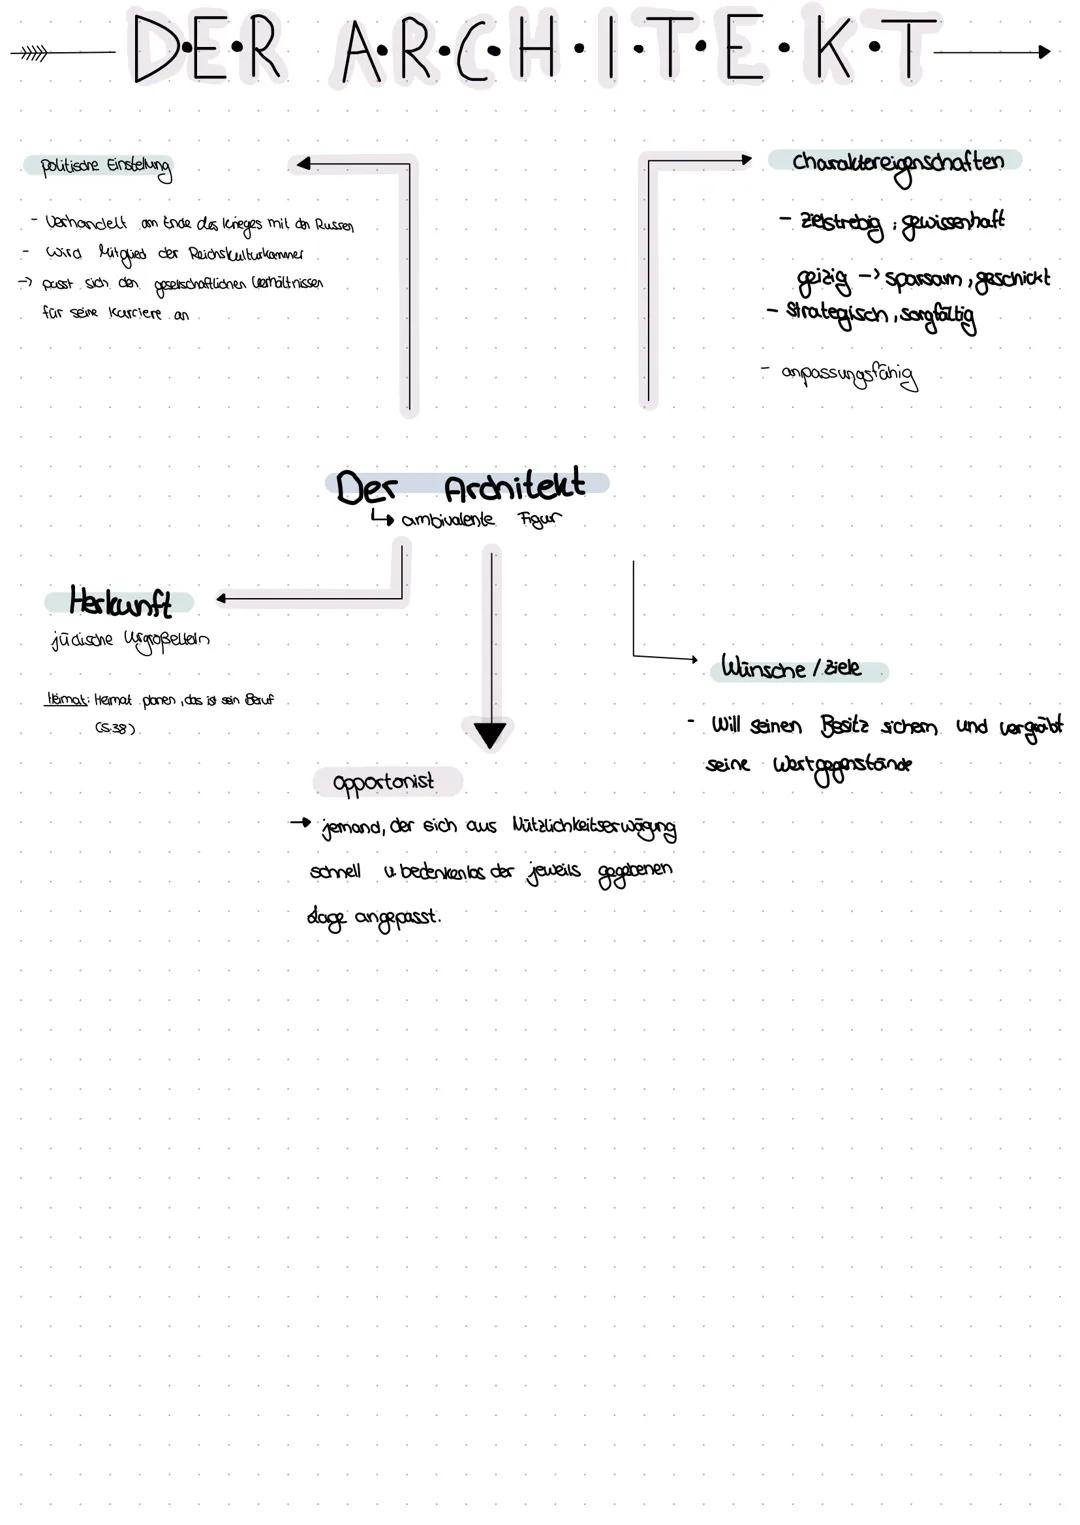 D·E·R A·R·C·H·I·T·E·K·T
politische Einstellung
- Verhandelt am Ende des Krieges mit den Russen
- wird Mitglied der Reichskulturkammer
-> passt sich den gesellschaftlichen Verhältnissen
für seine Karriere an
Charaktereigenschaften
- zielstrebig, gewissenhaft
geizig -> sparsam, geschickt
- strategisch, sorgfältig
- anpassungsfähig
Der Architekt
↳ ambivalente Figur
Herkunft
jüdische Urgroßeltern
Heimat: Heimat planen, das ist sein Beruf
(S.38)
Wünsche / Ziele
- Will seinen Besitz sichern und vergräbt
seine Wertgegenstände
Opportonist
→ jemand, der sich aus Nützlichkeitserwägung
schnell u. bedenkenlos der jeweils gegebenen
Lage angepasst.